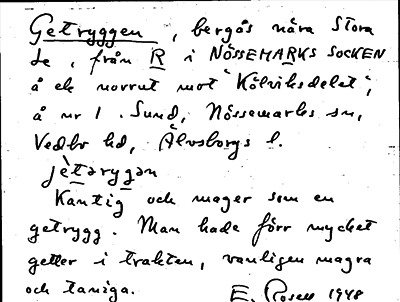 Getryggen, bergås nära Stora
Le, från R i NÖSSEMARKS SOCKEN
å ek norrut mot "Kölviksdelet",
å nr 1. Sund, Nössemarks sn,
Vedbo hd, Älvsborgs l.
jètarygan
Kantig och mager som en
getrygg. Man hade förr mycket
getter i trakten, vanligen magra
och taniga. E. Rosell 1948